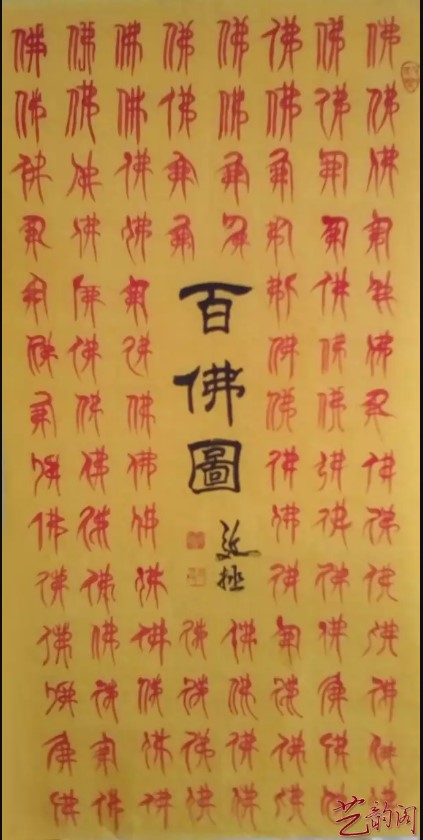 佛佛佛佛佛佛佛佛佛佛佛佛佛佛
佛佛佛佛佛佛佛佛佛佛佛佛佛佛
佛佛佛佛佛佛佛佛佛佛佛佛佛佛
佛佛佛佛
佛佛佛佛
百佛圖
佛佛佛佛
佛佛佛佛
佛佛佛佛佛佛佛佛佛佛佛佛佛佛
佛佛佛佛佛佛佛佛佛佛佛佛佛佛
佛佛佛佛佛佛佛佛佛佛佛佛佛佛
艺韵阁